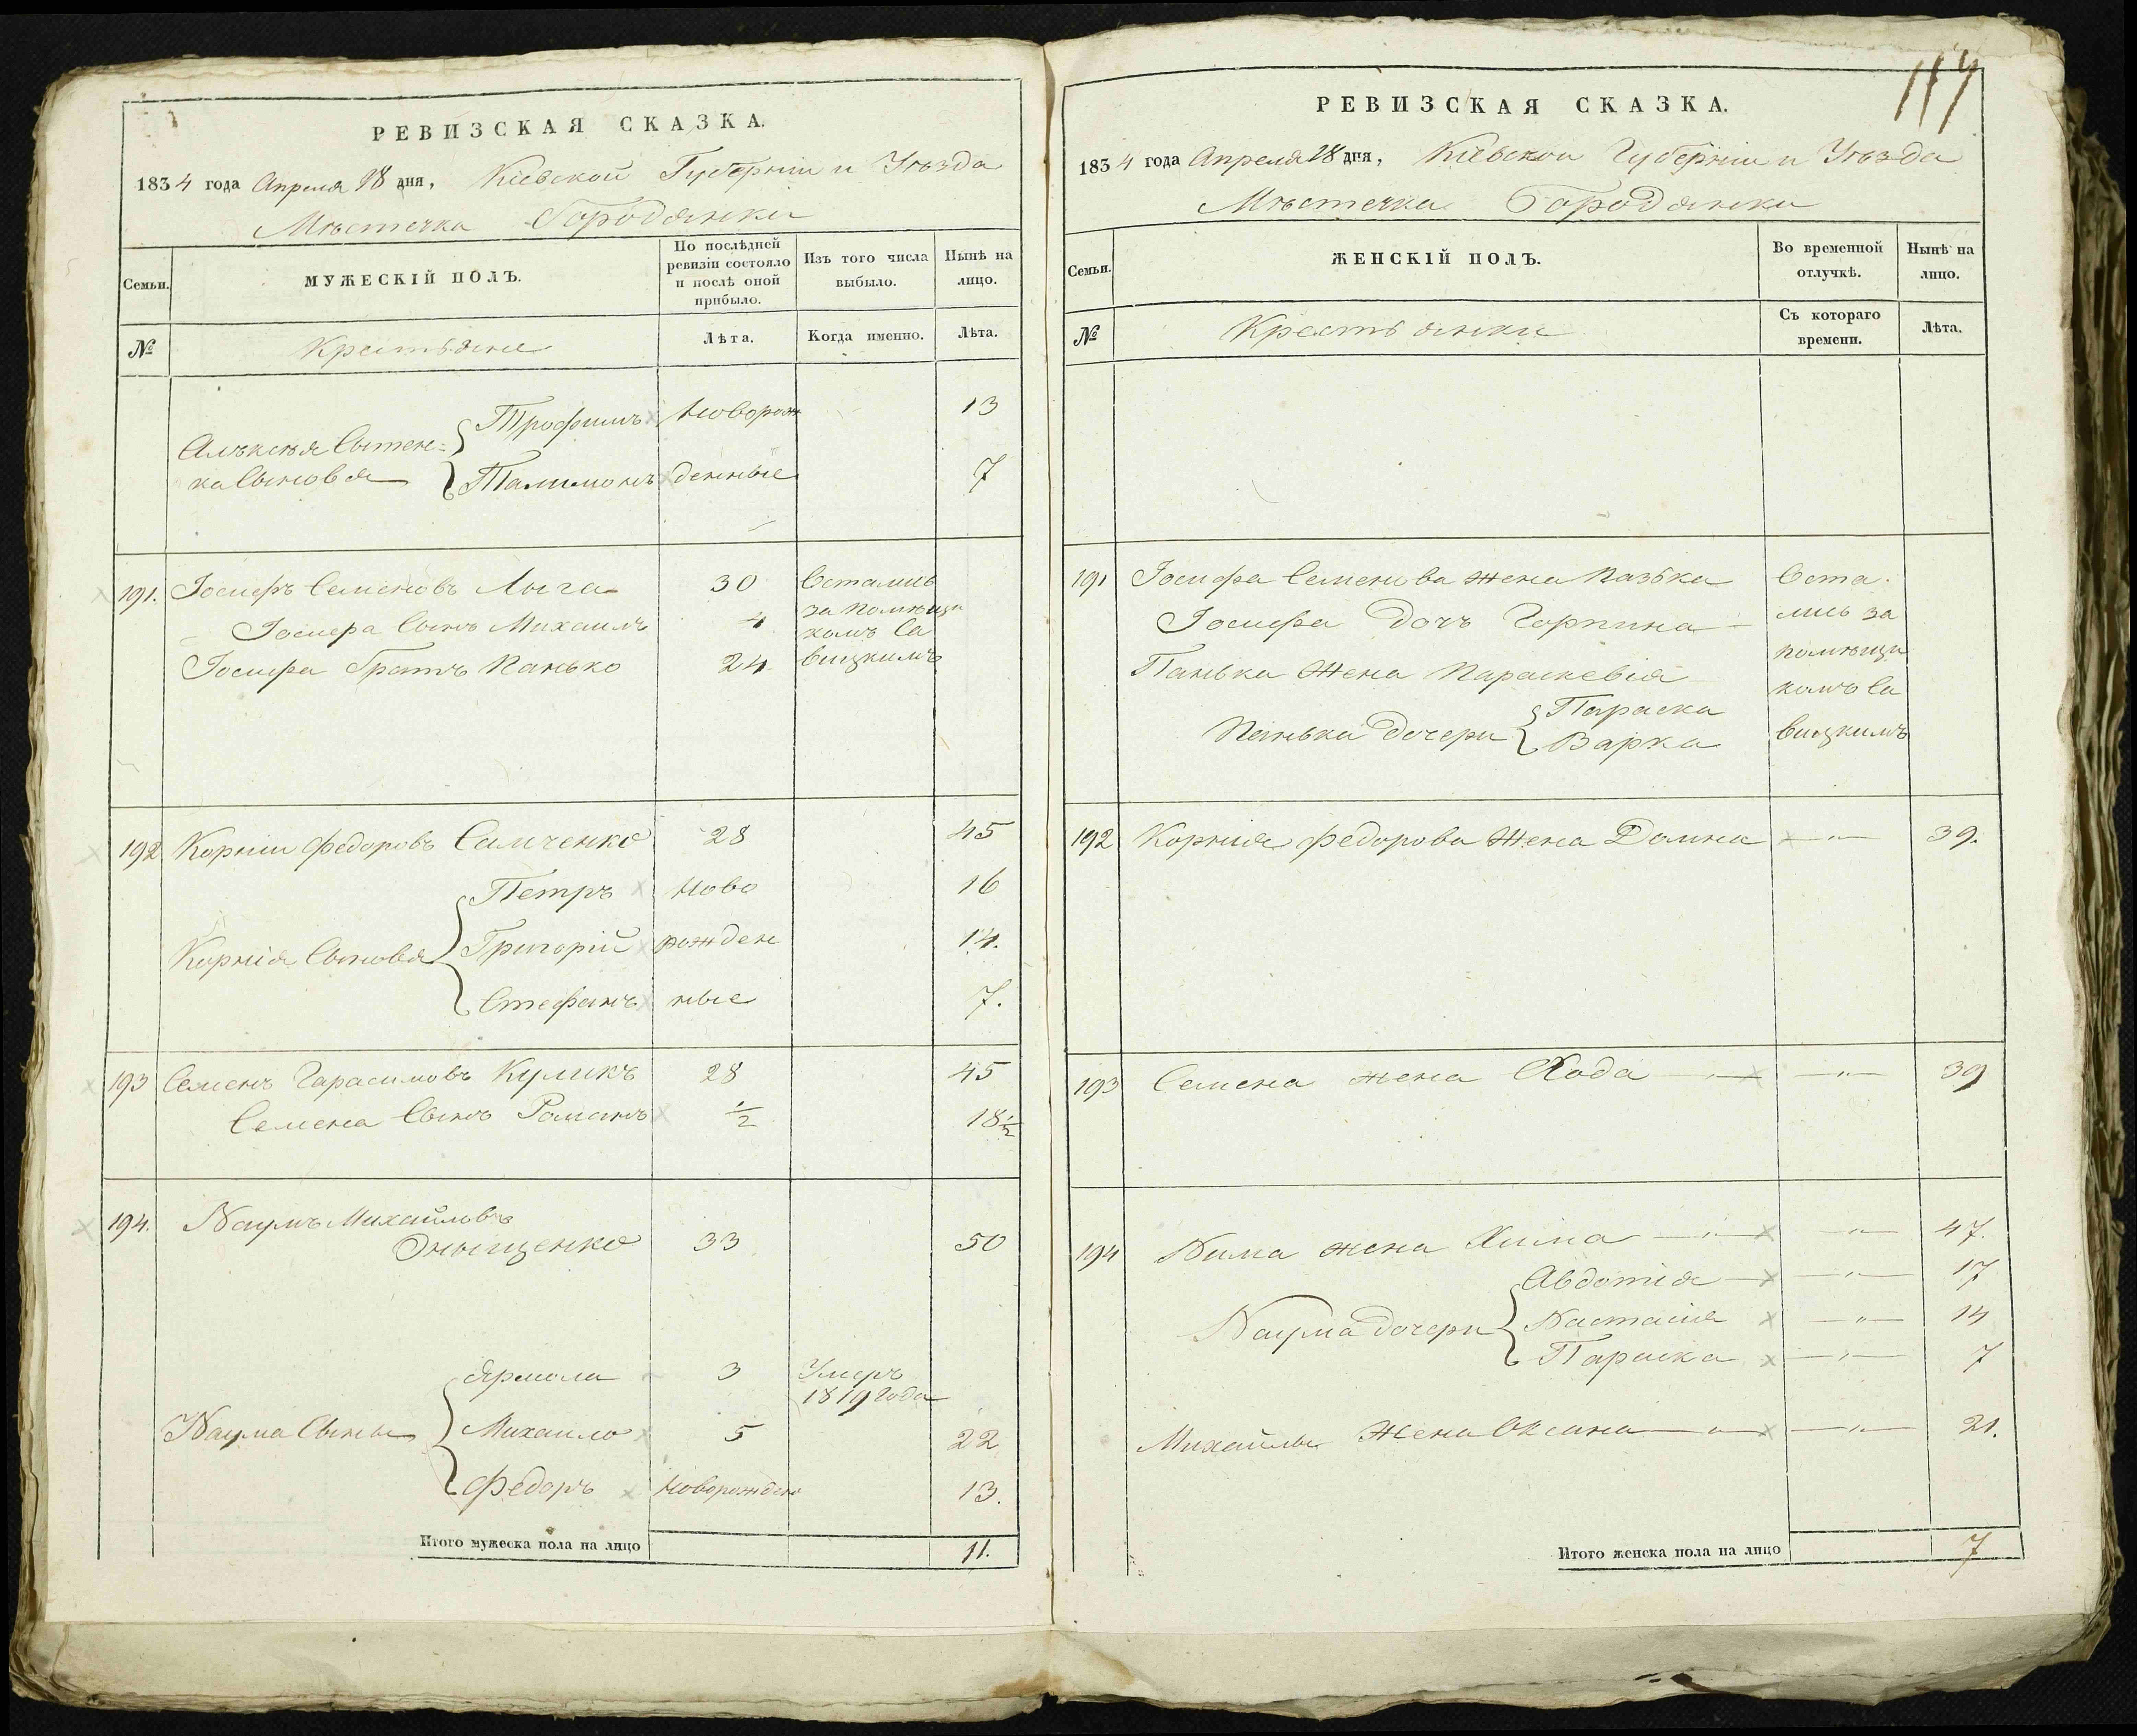 РЕВИЗСКАЯ СКАЗКА.
1834 года Апреля 18 дня, Кіевской Губерніи и Уѣзда
Мѣстечка Городянки
Семьи.
МУЖЕСКІЙ ПОЛЪ.
По послѣдней ревизіи состояло и послѣ оной прибыло.
Изъ того числа выбыло.
Нынѣ на лицо.
№
Крестьяне
Лѣта.
Когда именно.
Лѣта.
Трофимъ Новорож 13
Алѣксѣя Сытен=
ка Сыновья
Талимонъ денные 7
191. Іосифъ Семеновъ Лыга 30 Остались
за помѣщи
Іосифа Сынъ Михаилъ 4 комъ Са
Іосифа Братъ Панько 24 вицкимъ
192 Корнѣи Федоровъ Самченко 28 45
Петръ Ново 16
Корнія Сыновья Григорій рожден 14.
Стефанъ ные 7.
193 Семенъ Гарасимовъ Куликъ 28 45
Семена Сынъ Романъ 1/2 18 1/2
194. Наумъ Михайловъ
Оныщенко 33 50
Ярмола 3 Умеръ
1819 Года
Наума Сыны Михаило 5 22
Федоръ Новорожден 13.
Итого мужеска пола на лицо 11.
117
РЕВИЗСКАЯ СКАЗКА.
1834 года Апреля 18 дня, Кіевскои Губерніи и Уѣзда
Мѣстечка Городянки
Семьи.
ЖЕНСКІЙ ПОЛЪ.
Во временной отлучкѣ.
Нынѣ на лицо.
№
Крестьянки
Съ котораго времени.
Лѣта.
191 Іосифа Семенова жена Пазька Оста
Іосифа Дочъ Горпина лись за
помѣщи
Панька Жена Параскевія
комъ Са
Панька Дочери Параска
Варка вицкимъ
192 Корнія Федорова Жена Домна 39.
193 Семена жена Хода 39
194 жена Хима 47.
Авдотія 17
Наума Дочери Настасія 14
Параска 7
Михайлы Жена Оксана 21.
Итого женска пола на лицо 7